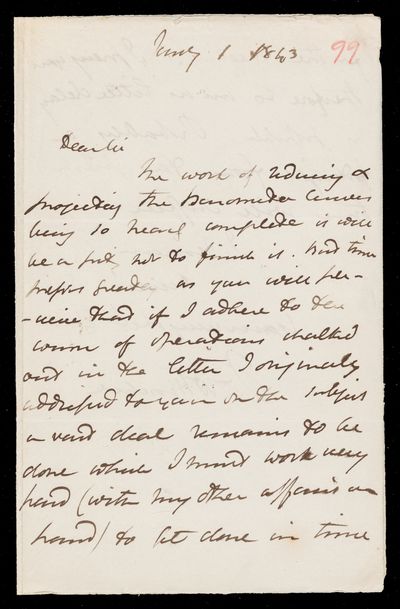 1 1843 99
Dear Sir
The work of reducing &
projecting the Barometer Curves
being so nearly complete it will
be a pity not to finish it. But time
presses & as you will per-
-ceive that if I adhere to the
course of operations chalked
out in the letter I originally
addressed to you on the subject
a vast deal remains to be
done which I must work very
hard (with my other affairs on
hand) to get done in time